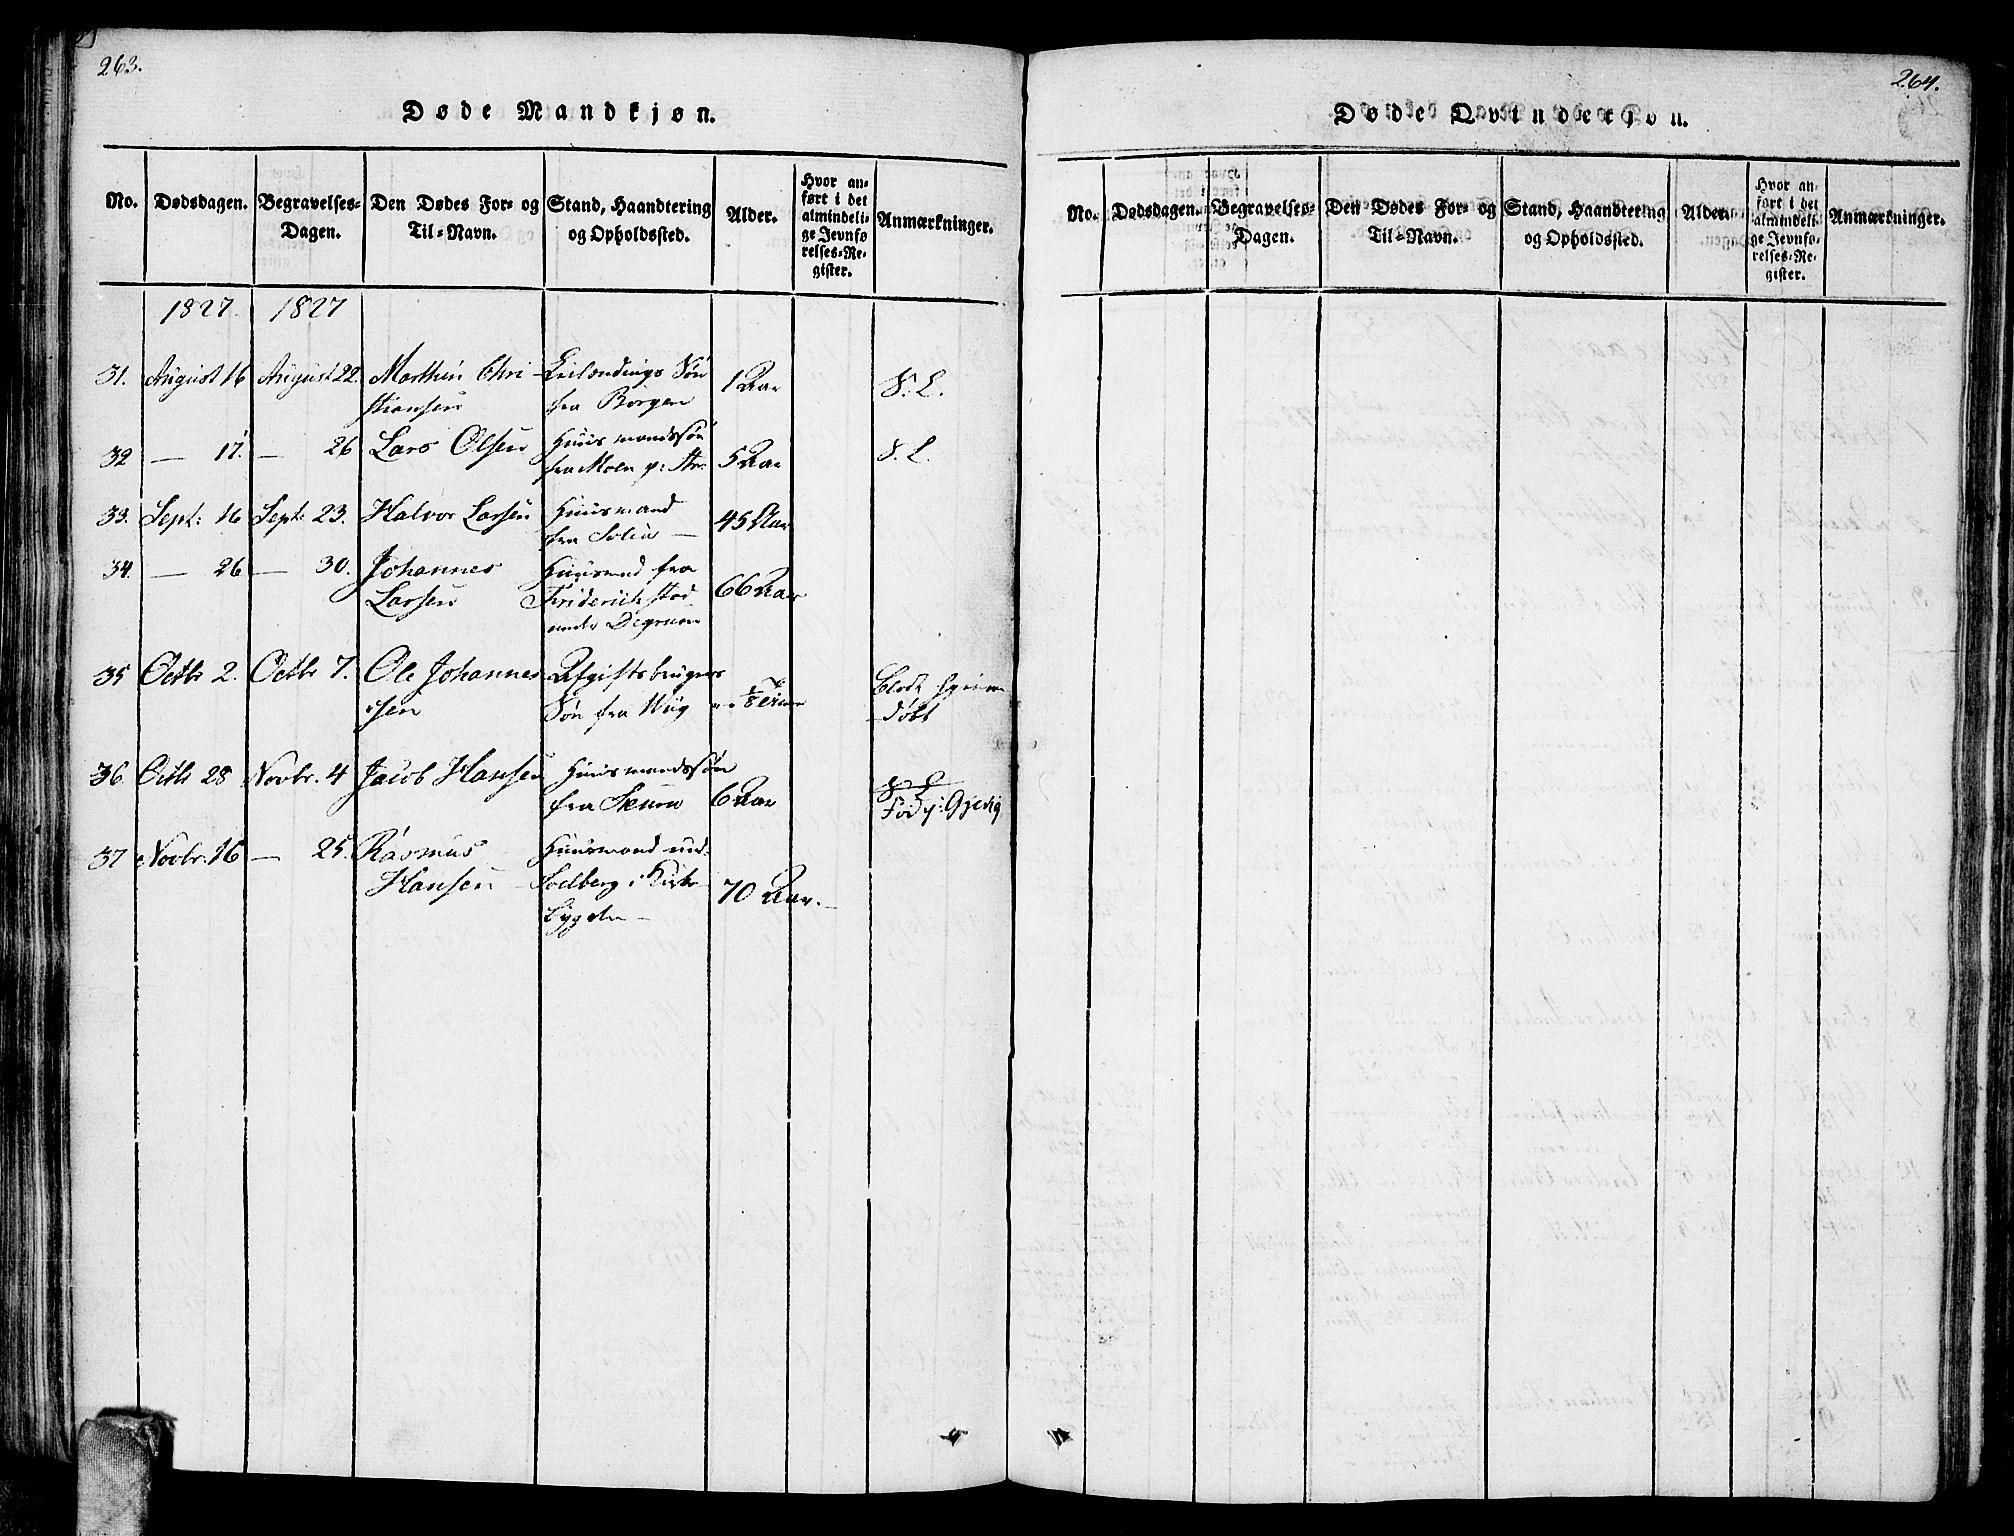 263.
Døde Mandkjøn.
No. Dødsdagen. Begravelses-Dagen. Den Dødes For- og Til-Navn. Stand, Haandtering og Opholdssted. Alder. Hvor anført i det almindelige Jevnførelses-Register. Anmærkninger.
1827. 1827
31. August 16 August 22. Marthin Chri- Leilændings Søn 1 Aar S. L.
stiansen fra Borgen
32 — 17. — 26 Lars Olsen Huusmandssøn 5 Aar S. L.
fra Moen
33. Sept: 16 Sept: 23. Halvor Larsen Huusmand 45 Aar
fra —
34. — 26 — 30. Johannes Huusmd fra 66 Aar
Larsen Friderichstad
under
35 Octbr 2. Octbr 7. Ole Johannes Afgiftsbrugers
sen Søn fra døbt
36 Octbr 28 Novbr. 4 Jacob Hansen Huusmandssøn 6 Aar S. L.
fra Gjøvig
37 Novbr. 16 — 25. Rasmus Huusmand und.
Hansen — i Kirke 70 Aar. —
bygden —
264.
Døde Qvindekjøn.
No. Dødsdagen. Begravelses-Dagen. Den Dødes For- og Til-Navn. Stand, Haandtering og Opholdssted. Alder. Hvor anført i det almindelige Jevnførelses-Register. Anmærkninger.